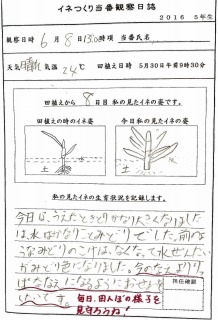 イネつくり当番観察日誌
2016 5年生
観察日時 6月8日 1300時頃 当番氏名
天気 晴れ 気温 24℃ 田植え日時 5月30日午前9時30分
田植えから 8日目 私の見たイネの姿です。
田植えの時のイネ姿 今日私の見たイネ姿
土 土
私の見たイネの生育状況を記録します。
今日は、うえたときよりかなり大きくなりました
は、水はかなりこみどりでした。前のよ
うなみどりのこけは、なくて、水ぜんたい
がみどり色になりました。
担任確認
毎日、田んぼの様子を
見守ろうね!